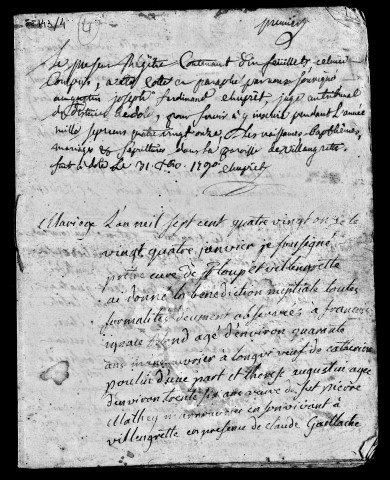 premier
Le present Registre Contenant dix feuillets celui cy
Compris, a été cotté et paraphé par nous soussigné
joseph ferdinand juge au tribunal
du District de dole, pour servir a y inscrire pendant l'année
mille sept cent quatre vingt onze, les naissances, Baptêmes,
mariages & sépultures dans la paroisse de villangrette
fait à dole Le 31 1790
Mariage L'an mil sept cent quatre vingt onze le
vingt quatre janvier je soussigné
prêtre curé de st loup et villengrette
ai donné la bénédiction nuptiale toutes
formalités duement observées a françois
ignace agé d'environ quarante
ans manouvrier à longwi veuf de catherine
poulin d'une part et therese augustin agée
d'environ trente six ans veuve de fut pierre
Mathey manouvrier en son vivant à
villengrette en presence de claude Gaillache